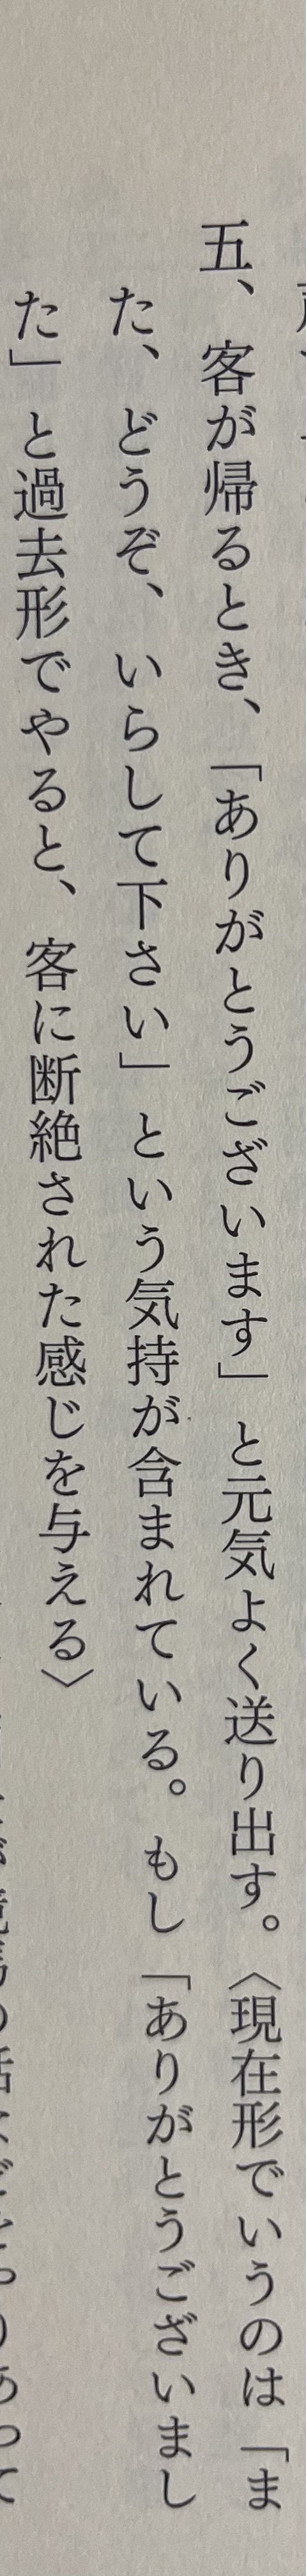 五、客が帰るとき、「ありがとうございます」と元気よく送り出す。〈現在形でいうのは「ま
た、どうぞ、いらして下さい」という気持が含まれている。もし「ありがとうございまし
た」と過去形でやると、客に断絶された感じを与える〉